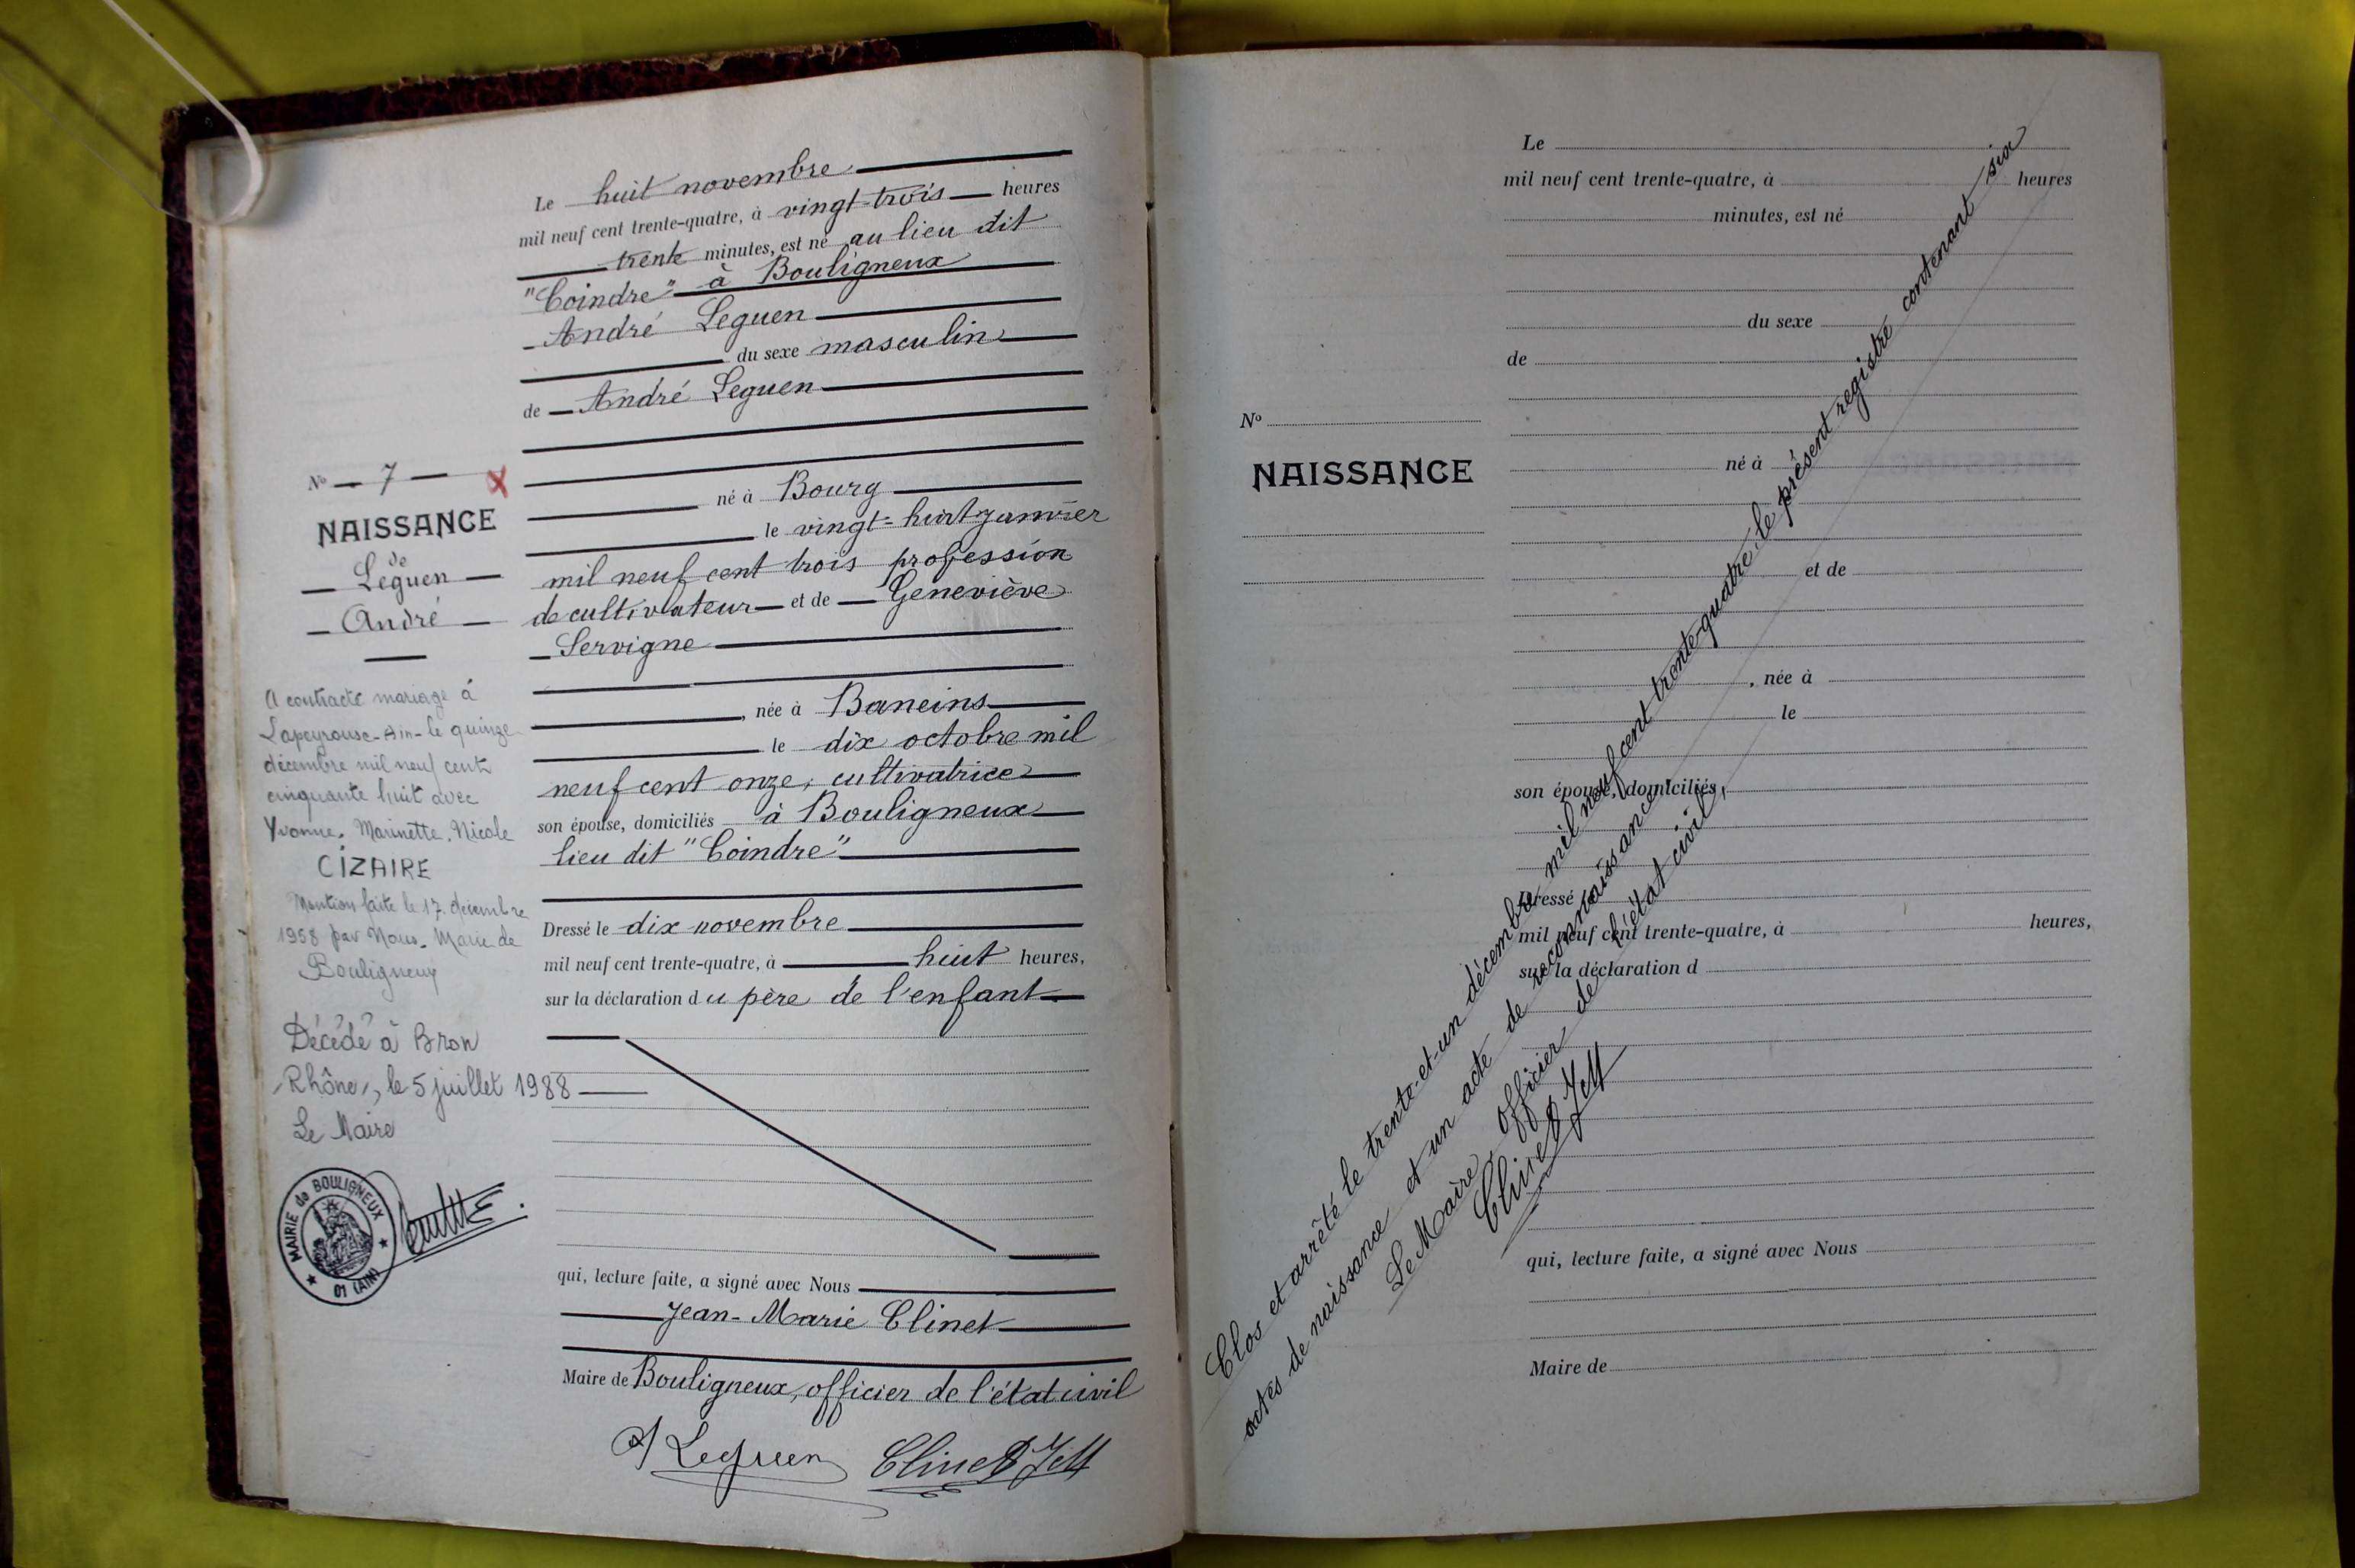 Le huit novembre
mil neuf cent trente-quatre, à vingt-trois heures
trente minutes, est né au lieu dit
"Coindre" à Bouligneux
André Leguen
du sexe masculin
de André Leguen
né à Bourg
le vingt-huit janvier
mil neuf cent trois profession
de cultivateur et de Geneviève
Servigne
, née à Baneins
le dix octobre mil
neuf cent onze, cultivatrice
son épouse, domiciliés à Bouligneux
lieu dit "Coindre"
Dressé le dix novembre
mil neuf cent trente-quatre, à huit heures,
sur la déclaration du père de l'enfant
qui, lecture faite, a signé avec Nous
Jean-Marie Clinet
Maire de Bouligneux, officier de l'état civil
A Leguen Clinet
No 7 X
NAISSANCE
de
Leguen
André
A contracté mariage à
Lapeyrouse-Ain-le quinze
décembre mil neuf cent
cinquante huit avec
Yvonne, Marinette, Nicole
CIZAIRE
Mention faite le 17 décembre
1958 par Nous, Maire de
Bouligneux
Décédé à Bron
/Rhône/, le 5 juillet 1988
Le Maire
MAIRIE de BOULIGNEUX
01 (AIN)
Le
mil neuf cent trente-quatre, à heures
minutes, est né
du sexe
de
No
NAISSANCE
né à
et de
, née à
le
son épouse, domiciliés
Dressé le
mil neuf cent trente-quatre, à heures,
sur la déclaration d
qui, lecture faite, a signé avec Nous
Maire de
Clos et arrêté le trente-et-un décembre mil neuf cent trente-quatre, le présent registre contenant six
actes de naissance et un acte de reconnaissance
Le Maire, officier de l'état civil,
Clinet